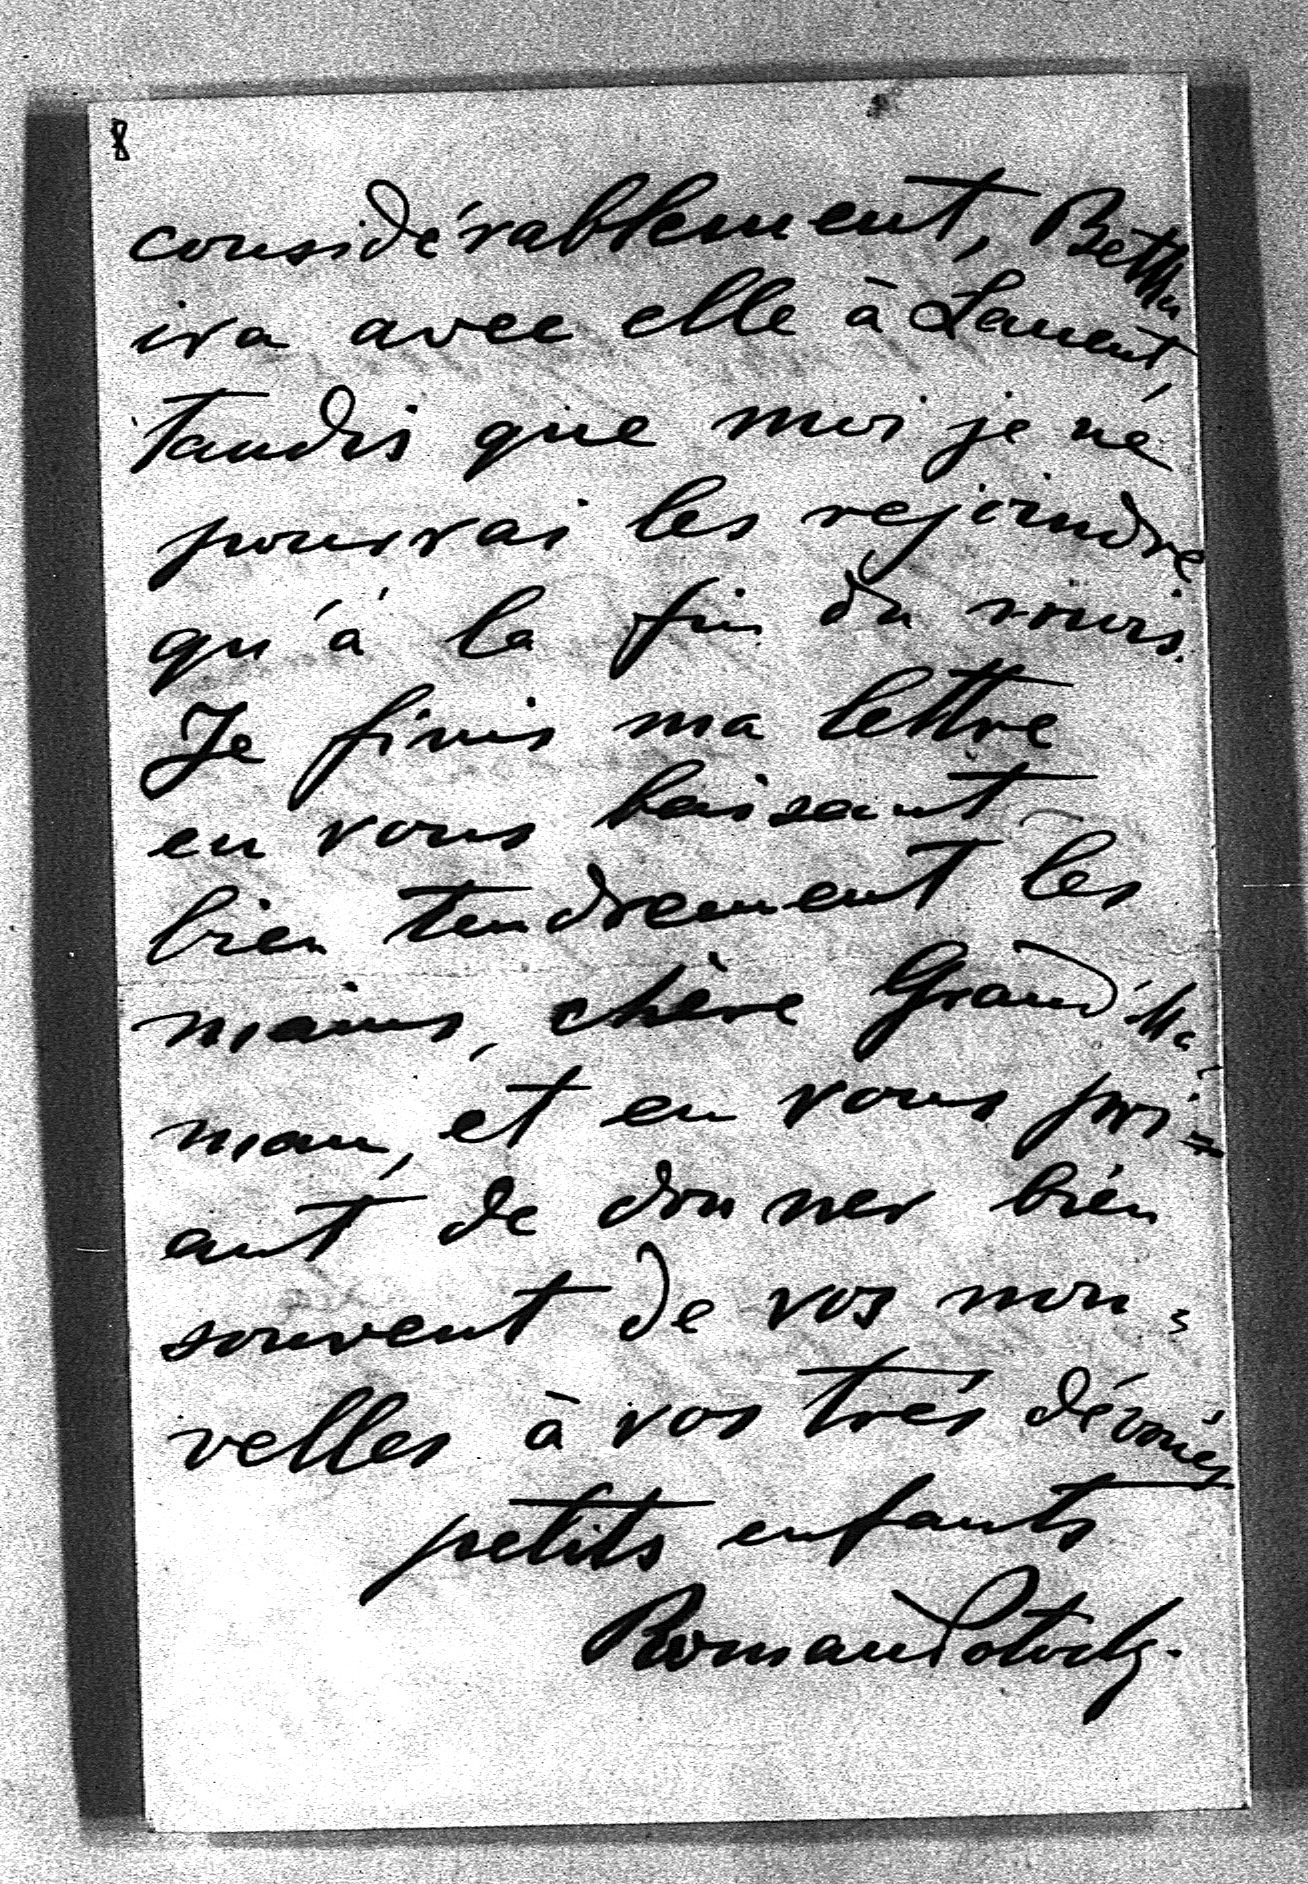 8
considérablement, Betka
ira avec elle à Lancut,
tandis que moi je ne
pourrai les rejoindre
qu'à la fin du mois.
Je finis ma lettre
en vous baisant
bien tendrement les
mains, chère Grand'Ma-
man, et en vous pri=
ant de donner bien
souvent de vos nou=
velles à vos très dévoués
petits enfants
Roman Potocki.